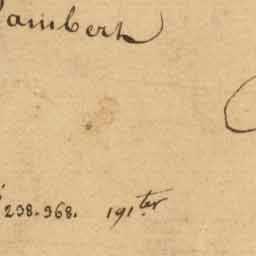 Lambert
298.968. 191ter